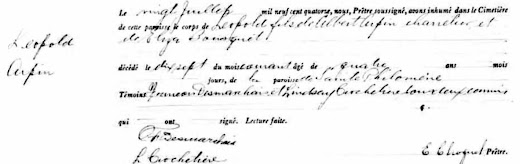 Leopold
Arpin
Le vingt Juillet mil neuf cent quatorze, nous, Prêtre soussigné, avons inhumé dans le Cimetière
de cette paroisse le corps de Leopold fils de Albert Arpin charretier et
de
décédé le dix sept du mois courant âgé de quatre ans mois
jours, de la paroisse de Sainte Philomène
Témoins François Desmarchais et Lindsay Crochetière tous deux connus
qui ont signé. Lecture faite.
F. Desmarchais
L Crochetière
E Choquet Prêtre.